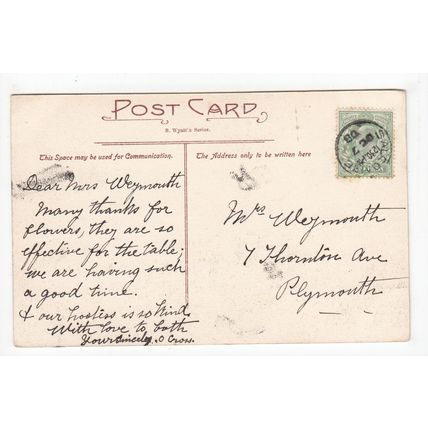 POST CARD
R. Wyatt's Series.
This Space may be used for Communication.
The Address only to be written here
Dear Mrs Weymouth
Many thanks for
flowers, they are so
effective for the table;
we are having such
a good time.
& our hostess is so kind.
With love to both
Yours Sincerely, O Cross.
Mrs Weymouth
7 Thornton Ave
Plymouth